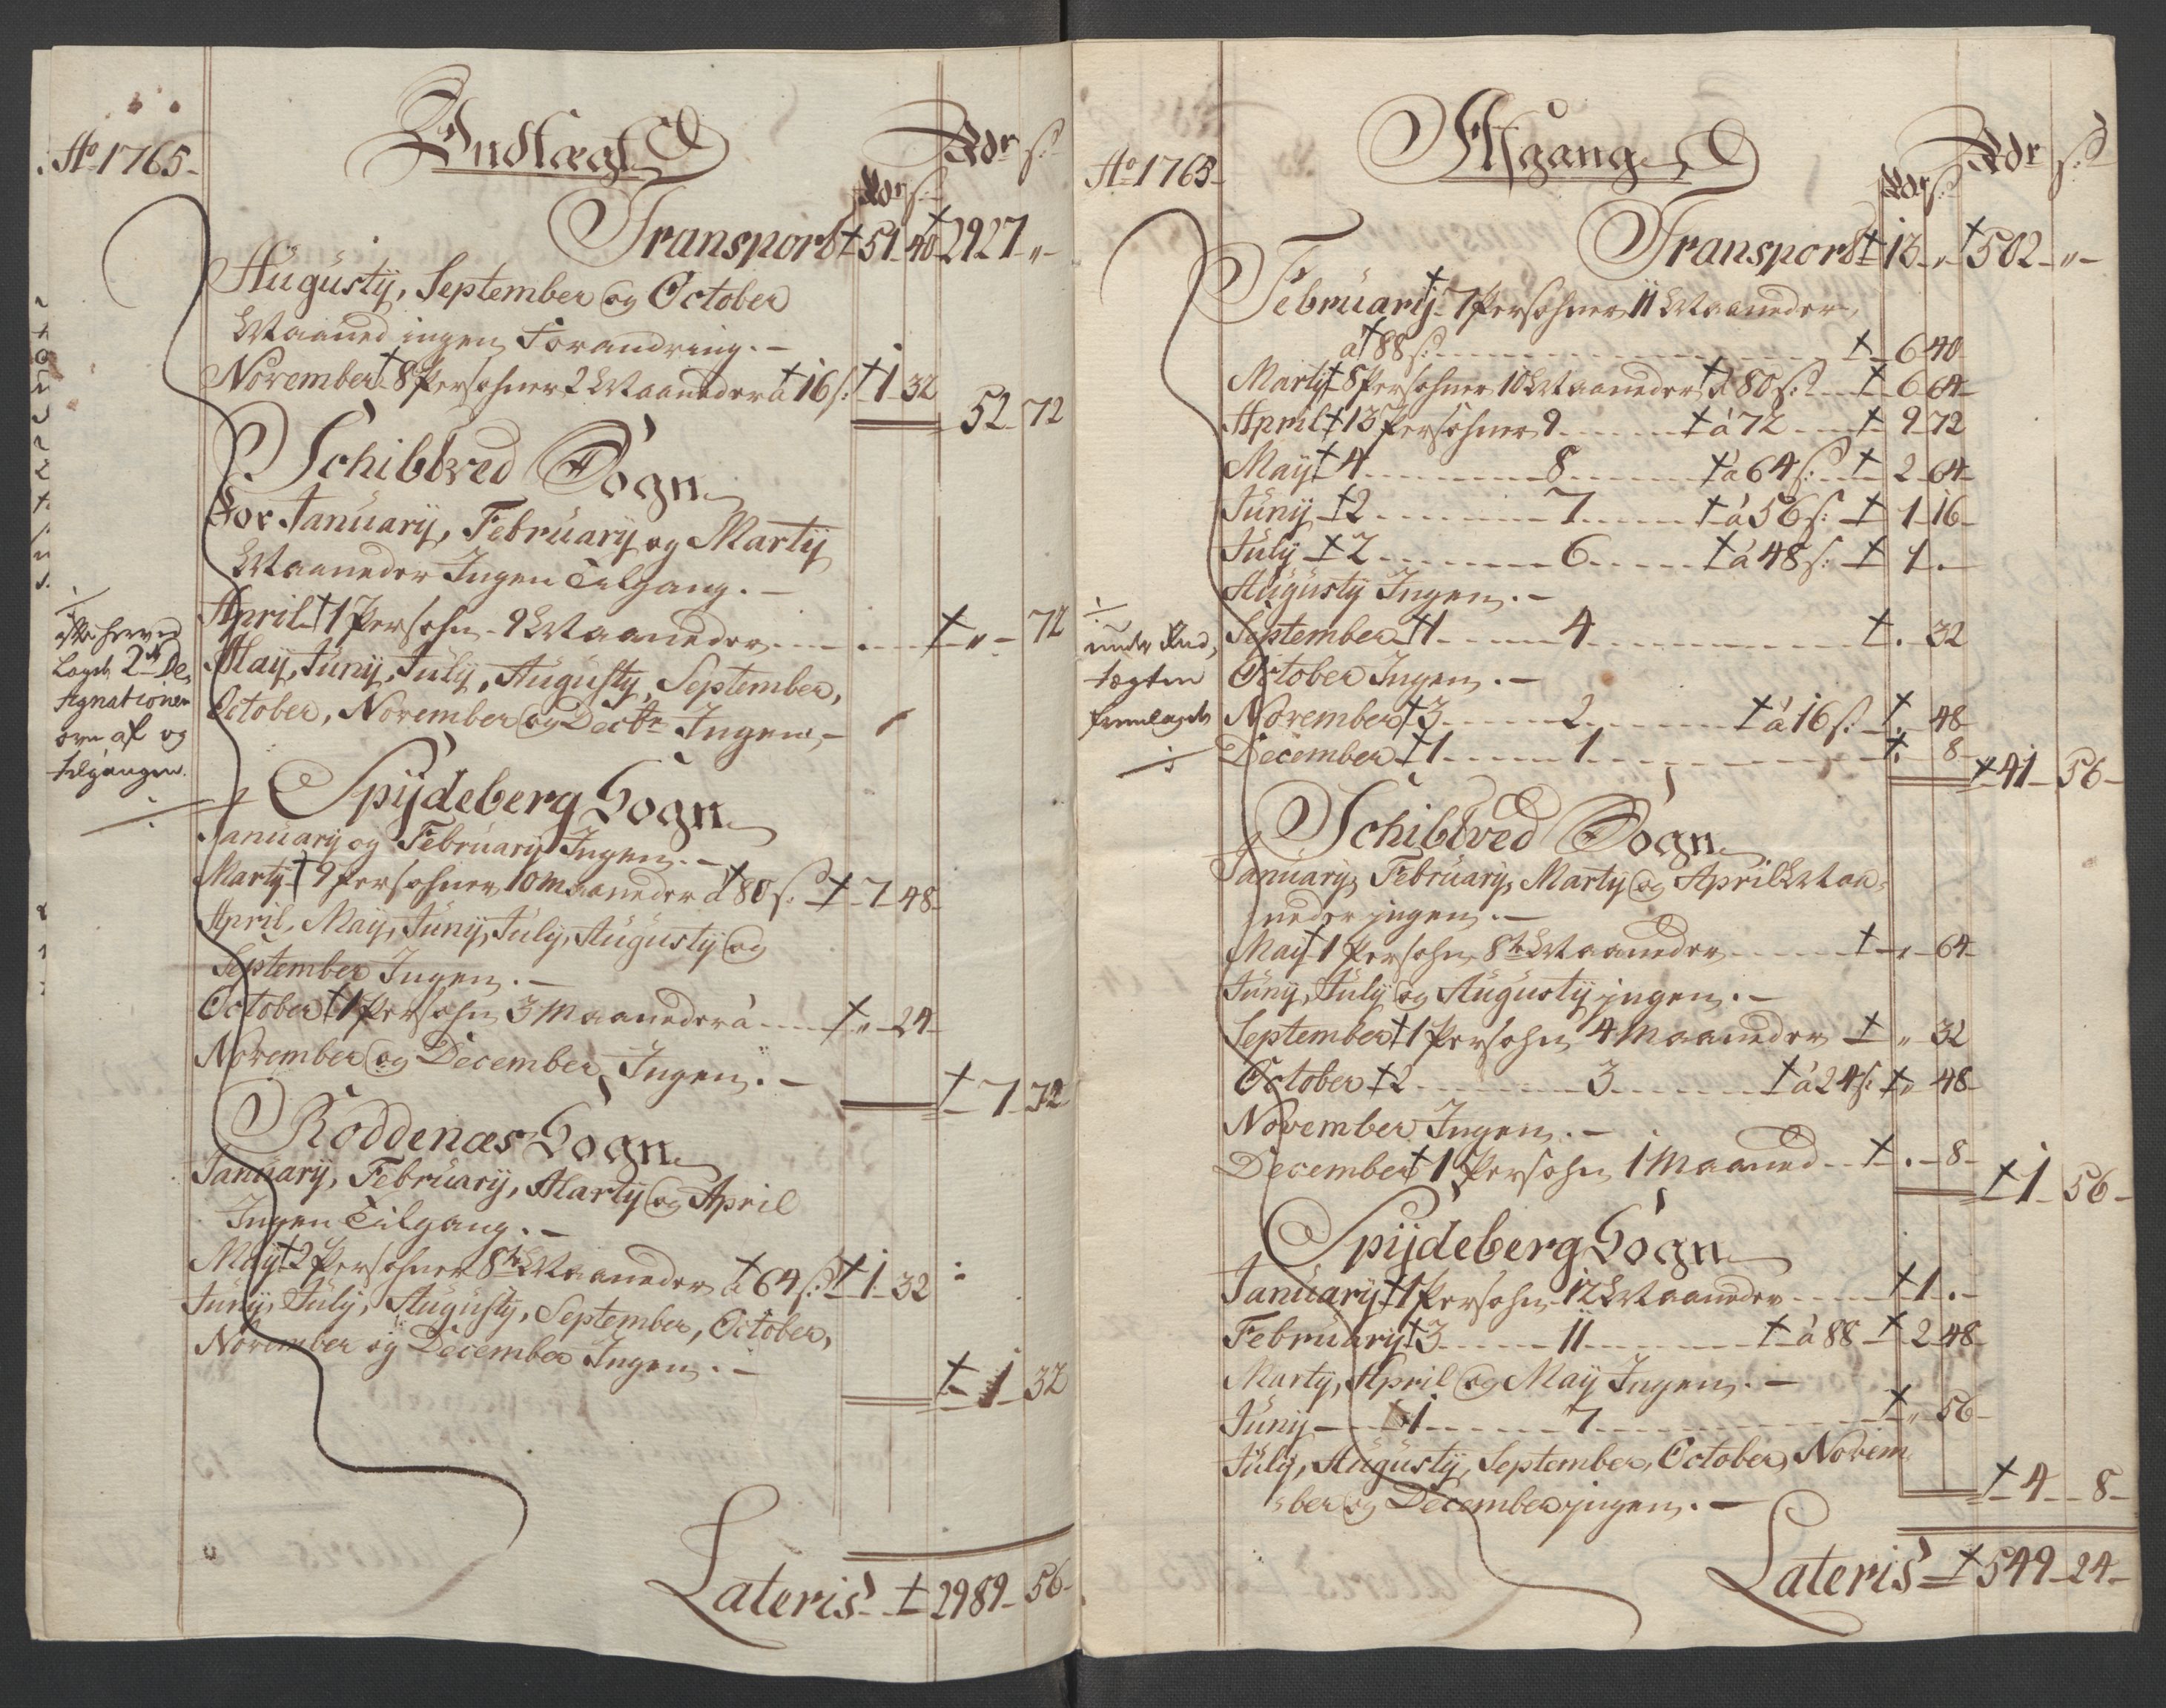 Ao 1765.
Indtægt
Rdr s:
Rdr s:
Transport 51. 40 2927. "
Augusty, September og October
Maaned ingen Forandring.
November 8 Persohner 2 Maaneder a 16 s: 1. 32
52. 72
Schibtved Sogn
For January, February og Marty
Maaneder Ingen Tilgang.
April 1 Persohn 9 Maaneder " 72
May, Juny, July, Augusty, September,
October, November og Decbr Ingen
Spydeberg Sogn
January og February Ingen.
Marty 9 Persohner 10 Maaneder a 80 s: 7. 48
April, May, Juny, July, Augusty og
September Ingen.
October 1 Persohn 3 Maaneder a " 24
November og December Ingen.
7. 72
Röddenæs Sogn
January, February, Marty og April
Ingen Tilgang.
May 2 Persohner 8te Maaneder a 64 s: 1. 32
Juny, July, Augusty, September, October,
November og December Ingen.
1. 32
Lateris 2989. 56
herved
Lagdt 2de De,
signationer
over af og
tilgangen.
Ao 1765
Afgang
Rdr s:
Rdr s:
Transport 13. " 502. "
February 7 Persohner 11 Maaneder
a 88 s: 6 40
Marty 8 Persohner 10 Maaneder a 80 s: 6 64
April 13 Persohner 9 a 72 9 72
May 4 8 a 64 s: 2 64
Juny 2 7 a 56 s: 1 16
July 2 6 a 48 s: 1 .
Augusty Ingen.
September 1 4 . 32
October Ingen.
November 3 2 a 16 s: . 48
December 1 1 . 8
41. 56
under Ind,
tægten
fremlagdt
Schibtved Sogn
January, February, Marty og April Maa=
neder ingen.
May 1 Persohn 8te Maaneder " 64
Juny, July og Augusty ingen.
September 1 Persohn 4 Maaneder " 32
October 2 3 a 24 s: " 48
November Ingen.
December 1 Persohn 1 Maaned . 8
1. 56
Spydeberg Sogn
January 1 Persohn 12 Maaneder 1 .
February 3 11 a 88 2 48
Marty, April og May Ingen.
Juny 1 7 " 56
July, Augusty, September, October, Novem
=ber og December ingen.
4. 8
Lateris 549. 24